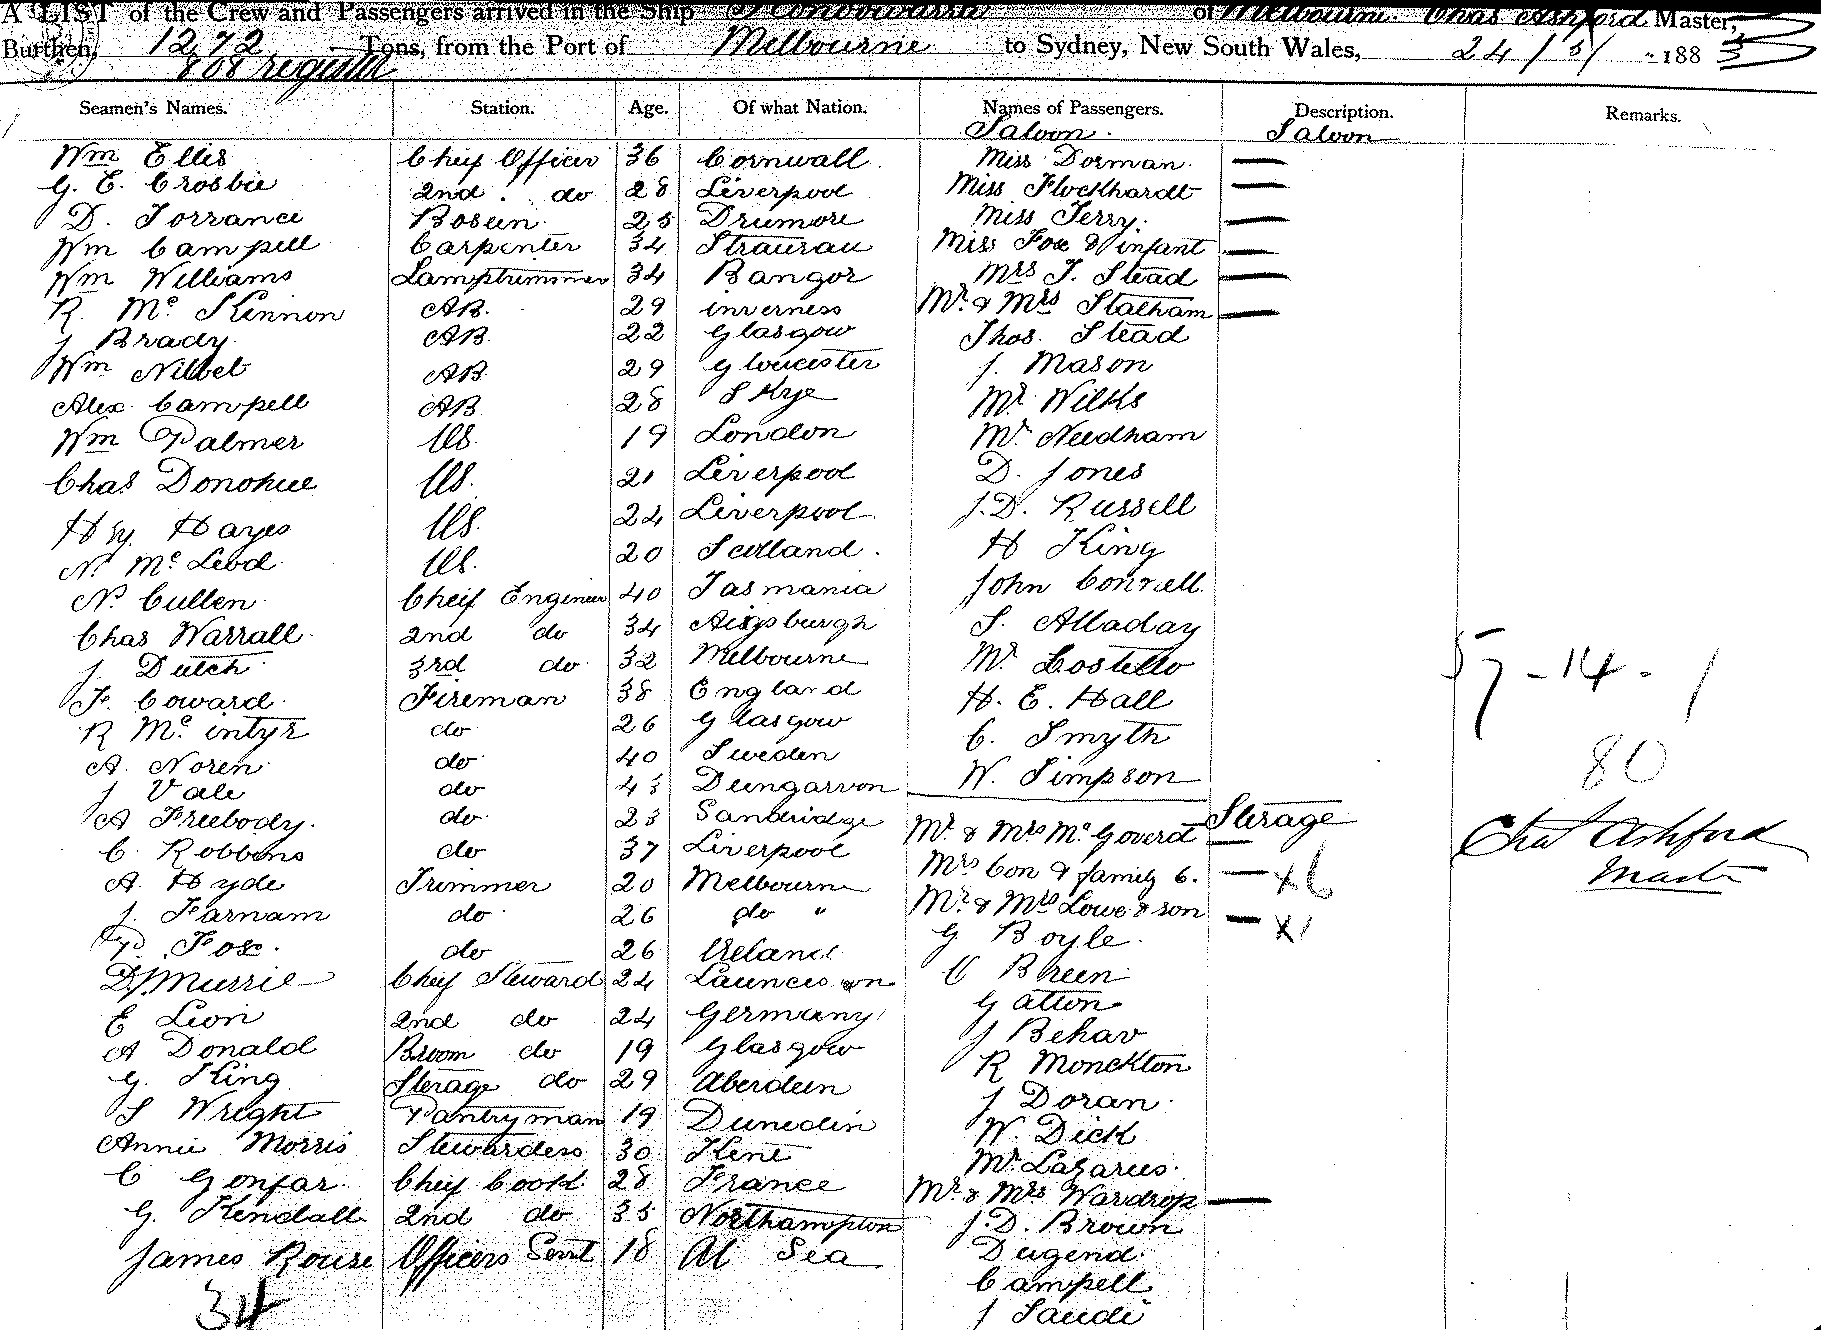 A LIST of the Crew and Passengers arrived in the Ship of Melbourne. Chas Ashford Master,
Burthen, 1272 Tons, from the Port of Melbourne to Sydney, New South Wales, 24/5/ 1883
808 register
Seamen's Names. Station. Age. Of what Nation. Names of Passengers. Description. Remarks.
Saloon. Saloon
Wm Ellis Cheif Officer 36 Cornwall. Miss Dorman. —
G. E. Crosbie 2nd. do 28 Liverpool Miss Flockhardt —
D. Torrance Bosun 25 Drumore Miss Terry. —
Wm Campell Carpenter 34 Miss Fox & infant —
Wm Williams Lamptrimmer 34 Bangor Mrs T. Stead —
R. Mc Kinnon AB. 29 inverness Mr. & Mrs Statham —
J Brady AB. 22 Glasgow Thos. Stead
Wm AB 29 Gloucester J. Mason
Alex. Campell AB. 28 Skye Mr. Wilks
Wm Palmer US. 19 London Mr. Needham
Chas Donohue US. 21 Liverpool D. Jones
Hy. Hayes US. 24 Liverpool J.D. Russell
N. Mc Leod US. 20 Scotland. H King
N. Cullen Cheif Engineer 40 Tasmania John Conrell.
Chas Warrall 2nd do 34 S. Alladay
J. Dutch 3rd do 32 Melbourne Mr. Costello
F. Coward. Fireman 38 England H. E. Hall
R Mc. intyr do 26 Glasgow C. Smyth
A. Noren do 40 Sweden W. Simpson
J Vale do 43 Dungarvon
A Freebody. do 23 Sandridge Mr. & Mrs Mc Goverd Sterage —
C. Robbins do 37 Liverpool Mrs Con & family 6. — x6
A. Hyde Trimmer 20 Melbourne Mr. & Mrs Lowe & son — x1
J. Farnam do 26 do " G Boyle.
Fox. do 26 Ireland C Breen
D J Murrie Cheif Steward 24 Launceston G Atton
E Lion 2nd do 24 Germany J Behav
A Donald Broom do 19 Glasgow R Monckton
G. King Sterage do 29 Aberdeen J Doran
S Wright Pantryman 19 Dunedin W. Dick
Annie Morris Stewardess 30 Kent Mr. Lazarus.
C Gonfar. Cheif Cook 28 France Mr. & Mrs Wardrop —
G. Kendall 2nd do 35 Northampton J.D. Brown
James Rouse Officers Servt 18 At Sea Dugend
Campell
J Saudi
34
57-14-1
80
Chas Ashford
Master